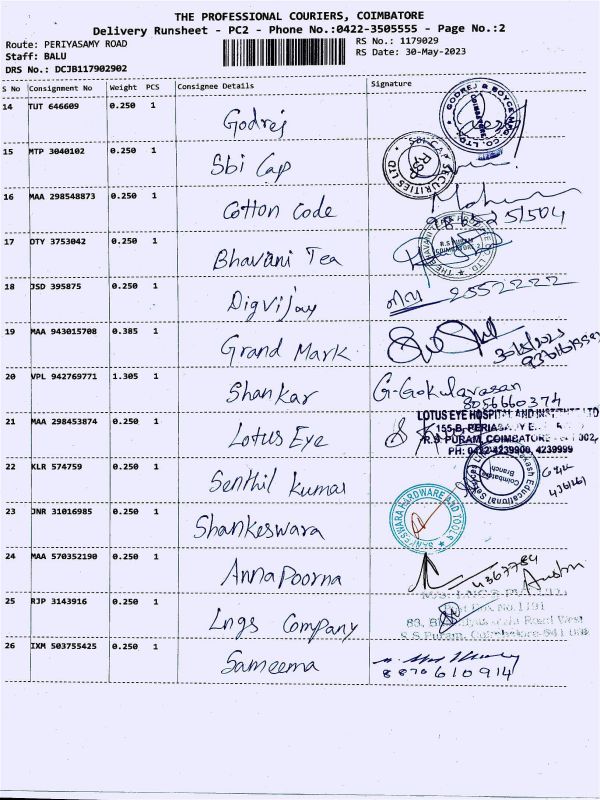 THE PROFESSIONAL COURIERS, COIMBATORE
Delivery Runsheet - PC2 - Phone No.:0422-3505555 - Page No.:2
Route: PERIYASAMY ROAD RS No.: 1179029
Staff: BALU RS Date: 30-May-2023
DRS No.: DCJB117902902
S No Consignment No Weight PCS Consignee Details Signature
14 TUT 646609 0.250 1 Godrej
GODREJ & BOYCE MFG. CO. LTD. COIMBATORE
15 MTP 3040102 0.250 1 Sbi Cap
SBI CAP SECURITIES LTD RSP
16 MAA 298548873 0.250 1 Cotton Code
17 DTY 3753042 0.250 1 Bhavani Tea
R.S.PURAM COIMBATORE-2
18 JSD 395875 0.250 1 Digvijay 2552222
19 MAA 943015708 0.385 1 Grand Mark
20 VPL 942769771 1.305 1 Shankar G-Gokulavasan
8056660374
21 MAA 298453874 0.250 1 Lotus Eye
LOTUS EYE HOSPITAL AND INSTITUTE LTD
155-B, PERIASAMY
R.S. PURAM, COIMBATORE 002,
PH: 0422-4239900, 4239999
22 KLR 574759 0.250 1 Senthil Kumar
Educational Coimbatore Branch
23 JNR 31016985 0.250 1 Shankeswara
HARDWARE AND TOOLS
24 MAA 570352190 0.250 1 AnnaPoorna 4367784
25 RJP 3143916 0.250 1 Lngs Company
No. 1191
83, Road West
R.S.Puram, Coimbatore-641 002
26 IXM 503755425 0.250 1 Sameema
8870610914